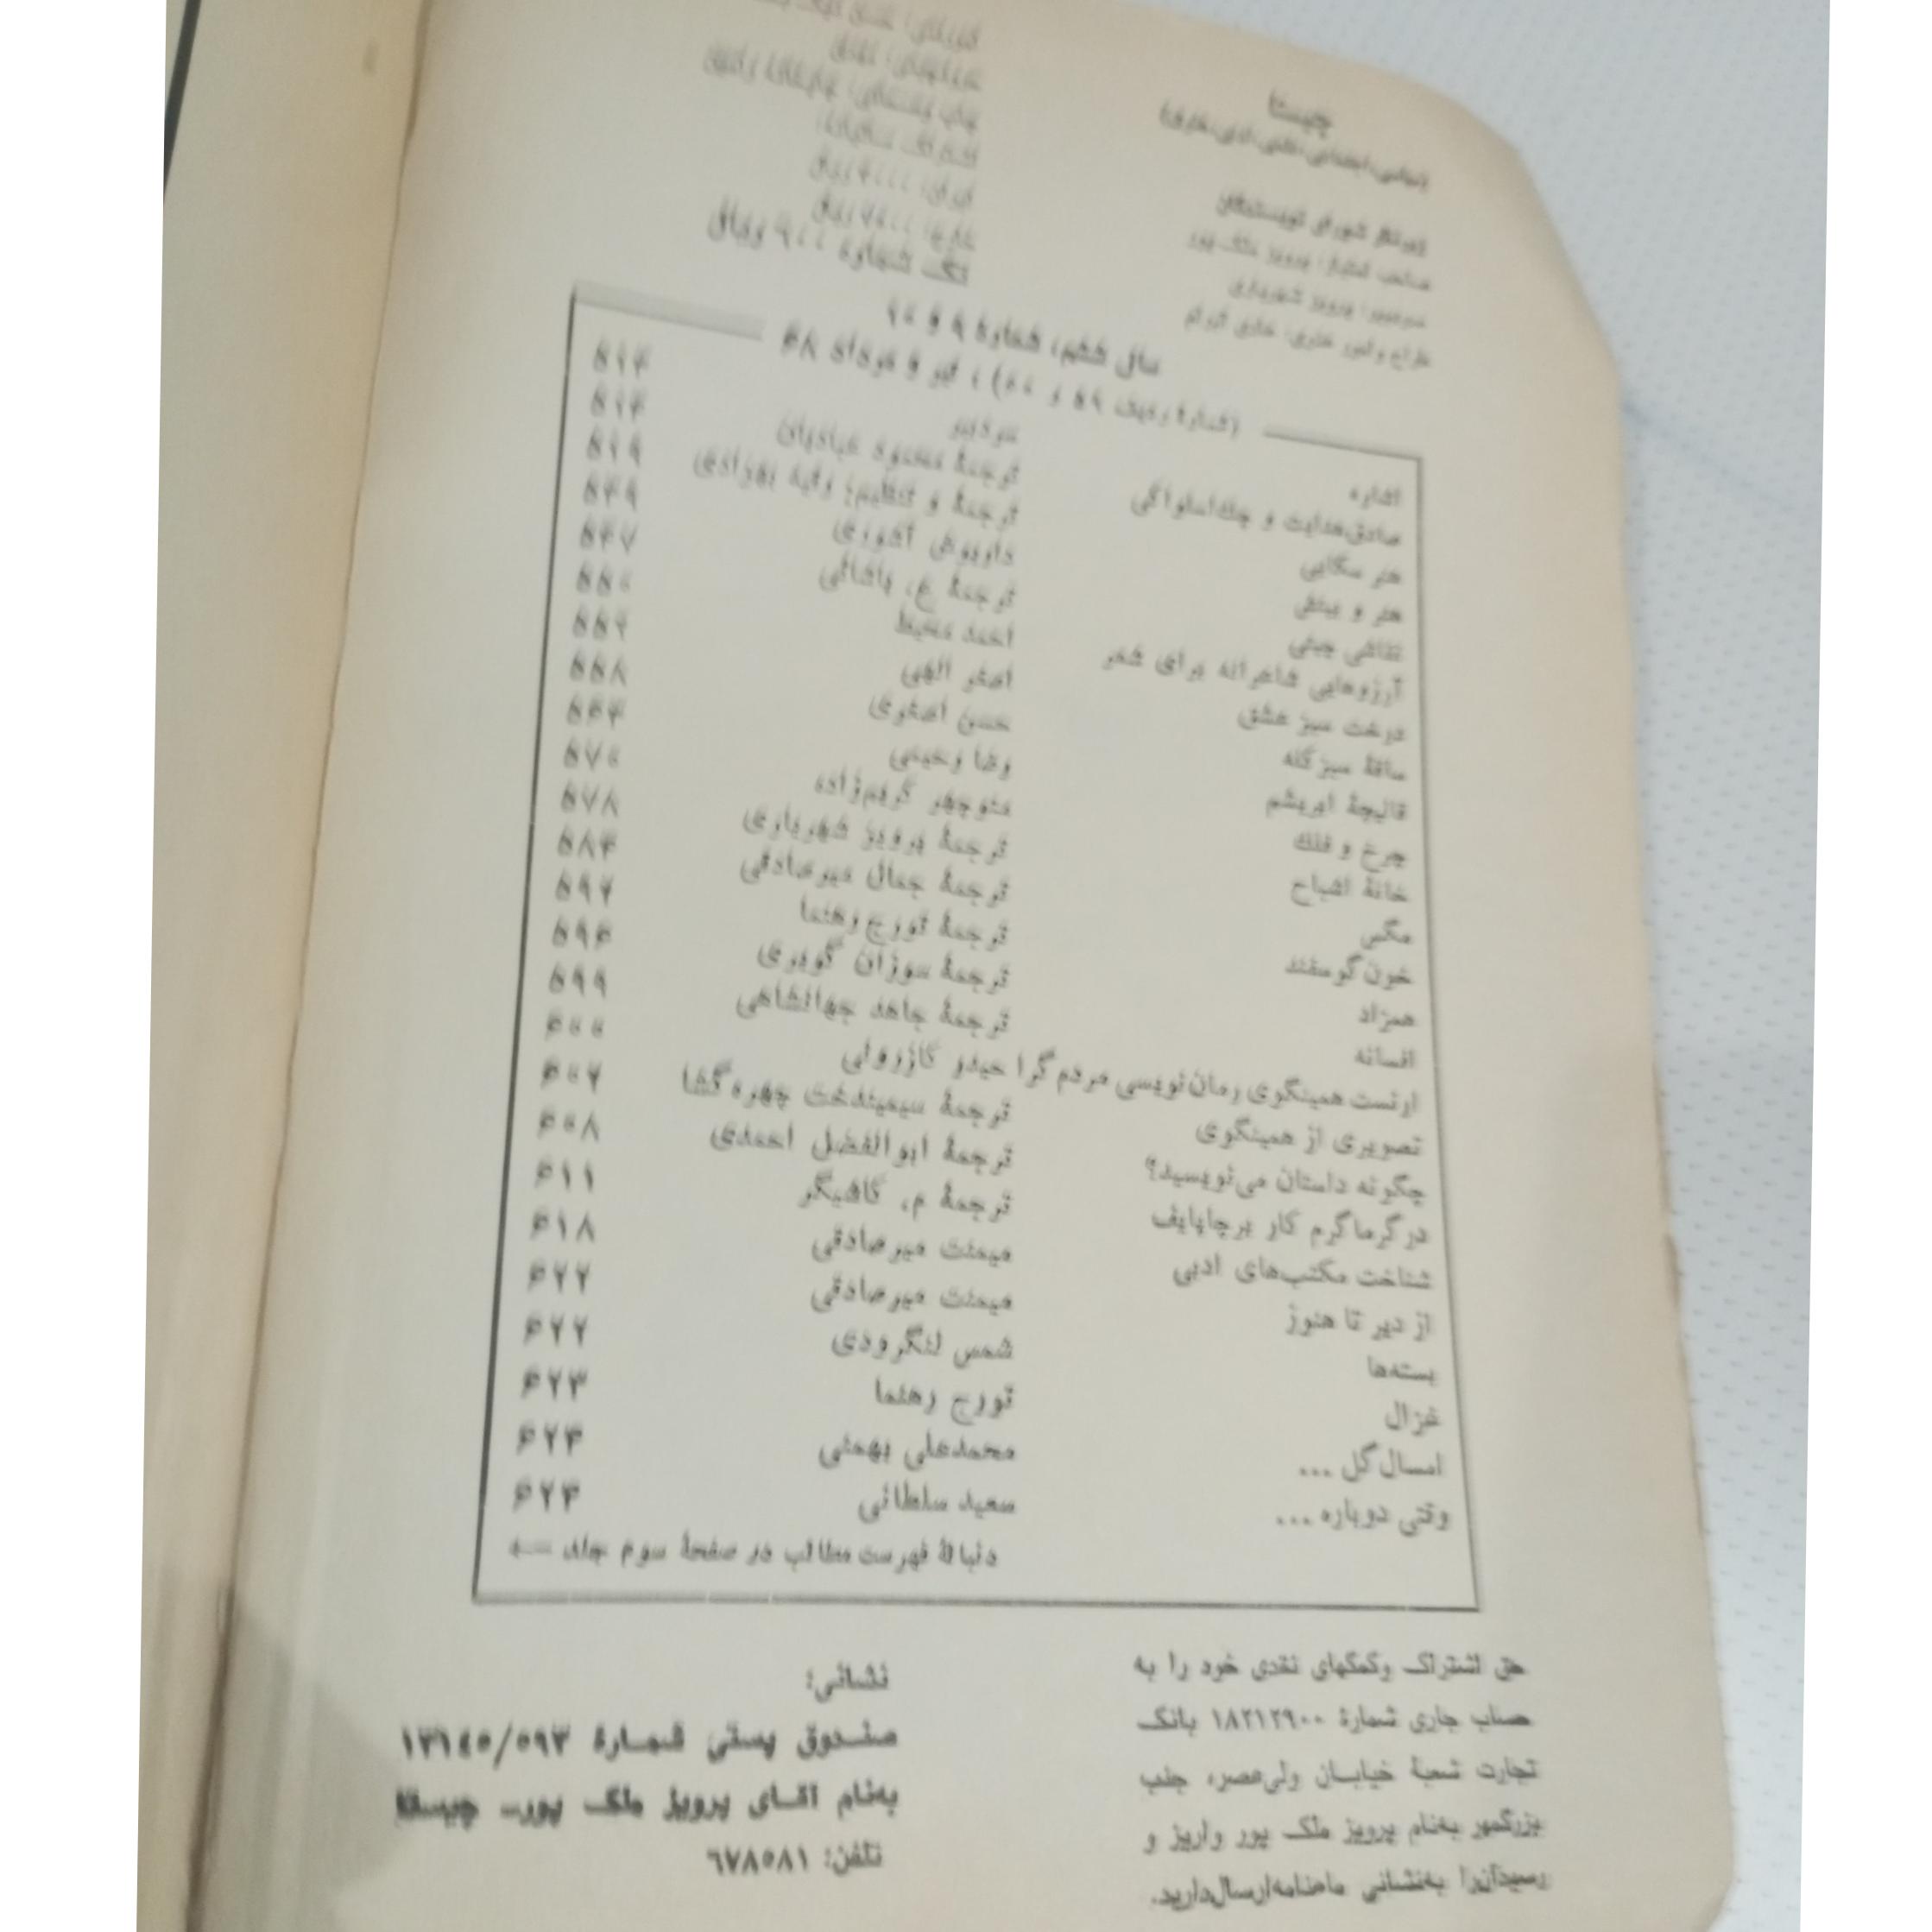 چیستا
(سیاسی، اجتماعی، علمی، ادبی، هنری)
زیر نظر شورای نویسندگان
صاحب امتیاز: پرویز ملک‌پور
سردبیر: پرویز شهریاری
تک شماره ۹۰۰ ریال
سال ششم، شمارهٔ ۹ و ۱۰
(شمارهٔ ردیف ۵۹ و ۶۰)، تیر و مرداد ۶۸
اشاره سردبیر ۵۱۳
صادق هدایت و چک‌اسلواکی ترجمهٔ محمود عبادیان ۵۱۴
هنر سکایی ترجمهٔ و تنظیم: رقیه بهزادی ۵۱۹
هنر و بینش داریوش آشوری
نقاشی چینی ترجمهٔ ع. پاشائی ۵۴۷
آرزوهایی شاعرانه برای شعر احمد محیط ۵۵۰
درخت سبز عشق اصغر الهی ۵۵۲
ساقهٔ سبز کله حسن اصغری ۵۵۸
قالیچهٔ ابریشم رضا رحیمی ۵۶۴
چرخ و فلک منوچهر کریم‌زاده ۵۷۰
خانهٔ اشباح ترجمهٔ پرویز شهریاری ۵۷۸
مگس ترجمهٔ جمال میرصادقی ۵۸۴
خون گوسفند ترجمهٔ تورج رهنما ۵۹۲
همزاد ترجمهٔ سوزان گویری ۵۹۶
افسانه ترجمهٔ جاهد جهانشاهی ۵۹۹
ارنست همینگوی رمان‌نویسی مردم‌گرا حیدر کازرونی ۶۰۰
تصویری از همینگوی ترجمهٔ سیمیندخت چهره‌گشا ۶۰۲
چگونه داستان می‌نویسید؟ ترجمهٔ ابوالفضل احمدی ۶۰۸
درگرماگرم کار برچاپایف ترجمهٔ م. کاشیگر ۶۱۱
شناخت مکتب‌های ادبی میمنت میرصادقی ۶۱۸
از دیر تا هنوز میمنت میرصادقی ۶۲۲
بسته‌ها شمس لنگرودی ۶۲۲
غزال تورج رهنما ۶۲۳
امسال گل ... محمدعلی بهمنی ۶۲۴
وقتی دوباره ... سعید سلطانی ۶۲۴
دنبالهٔ فهرست مطالب در صفحهٔ سوم جلد
حق اشتراک وکمکهای نقدی خود را به
حساب جاری شمارهٔ ۱۸۲۱۲۹۰۰ بانک
تجارت شعبهٔ خیابان ولی‌عصر، جنب
بزرگمهر به‌نام پرویز ملک پور واریز و
رسیدآن‌را به‌نشانی ماهنامه‌ارسال‌دارید.
نشانی:
صندوق پستی شمارهٔ ۱۳۱۴۵/۵۹۳
به‌نام آقای پرویز ملک پور_ چیستا
تلفن: ۶۷۸۵۸۱